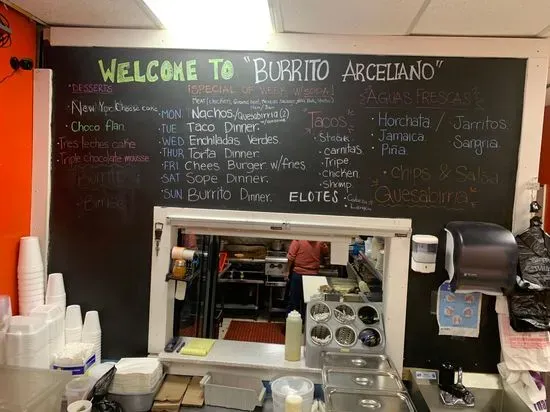 WELCOME TO "BURRITO ARCELIANO"
DESSERTS
New York Cheese cake
Choco flan
Tres leches cake
Triple chocolate mousse
SPECIAL OF WEEK W/SODA!
MON Nachos/Quesabirria (2)
TUE Taco Dinner
WED Enchiladas Verdes
THUR Torta Dinner
FRI Chees Burger w/fries
SAT Sope Dinner
SUN Burrito Dinner
Tacos
Steak
carnitas
Tripe
chicken
Shrimp
ELOTES
AGUAS FRESCAS
Horchata / Jarritos
Jamaica Sangria
Piña
Chips & Salsa
Quesabirria